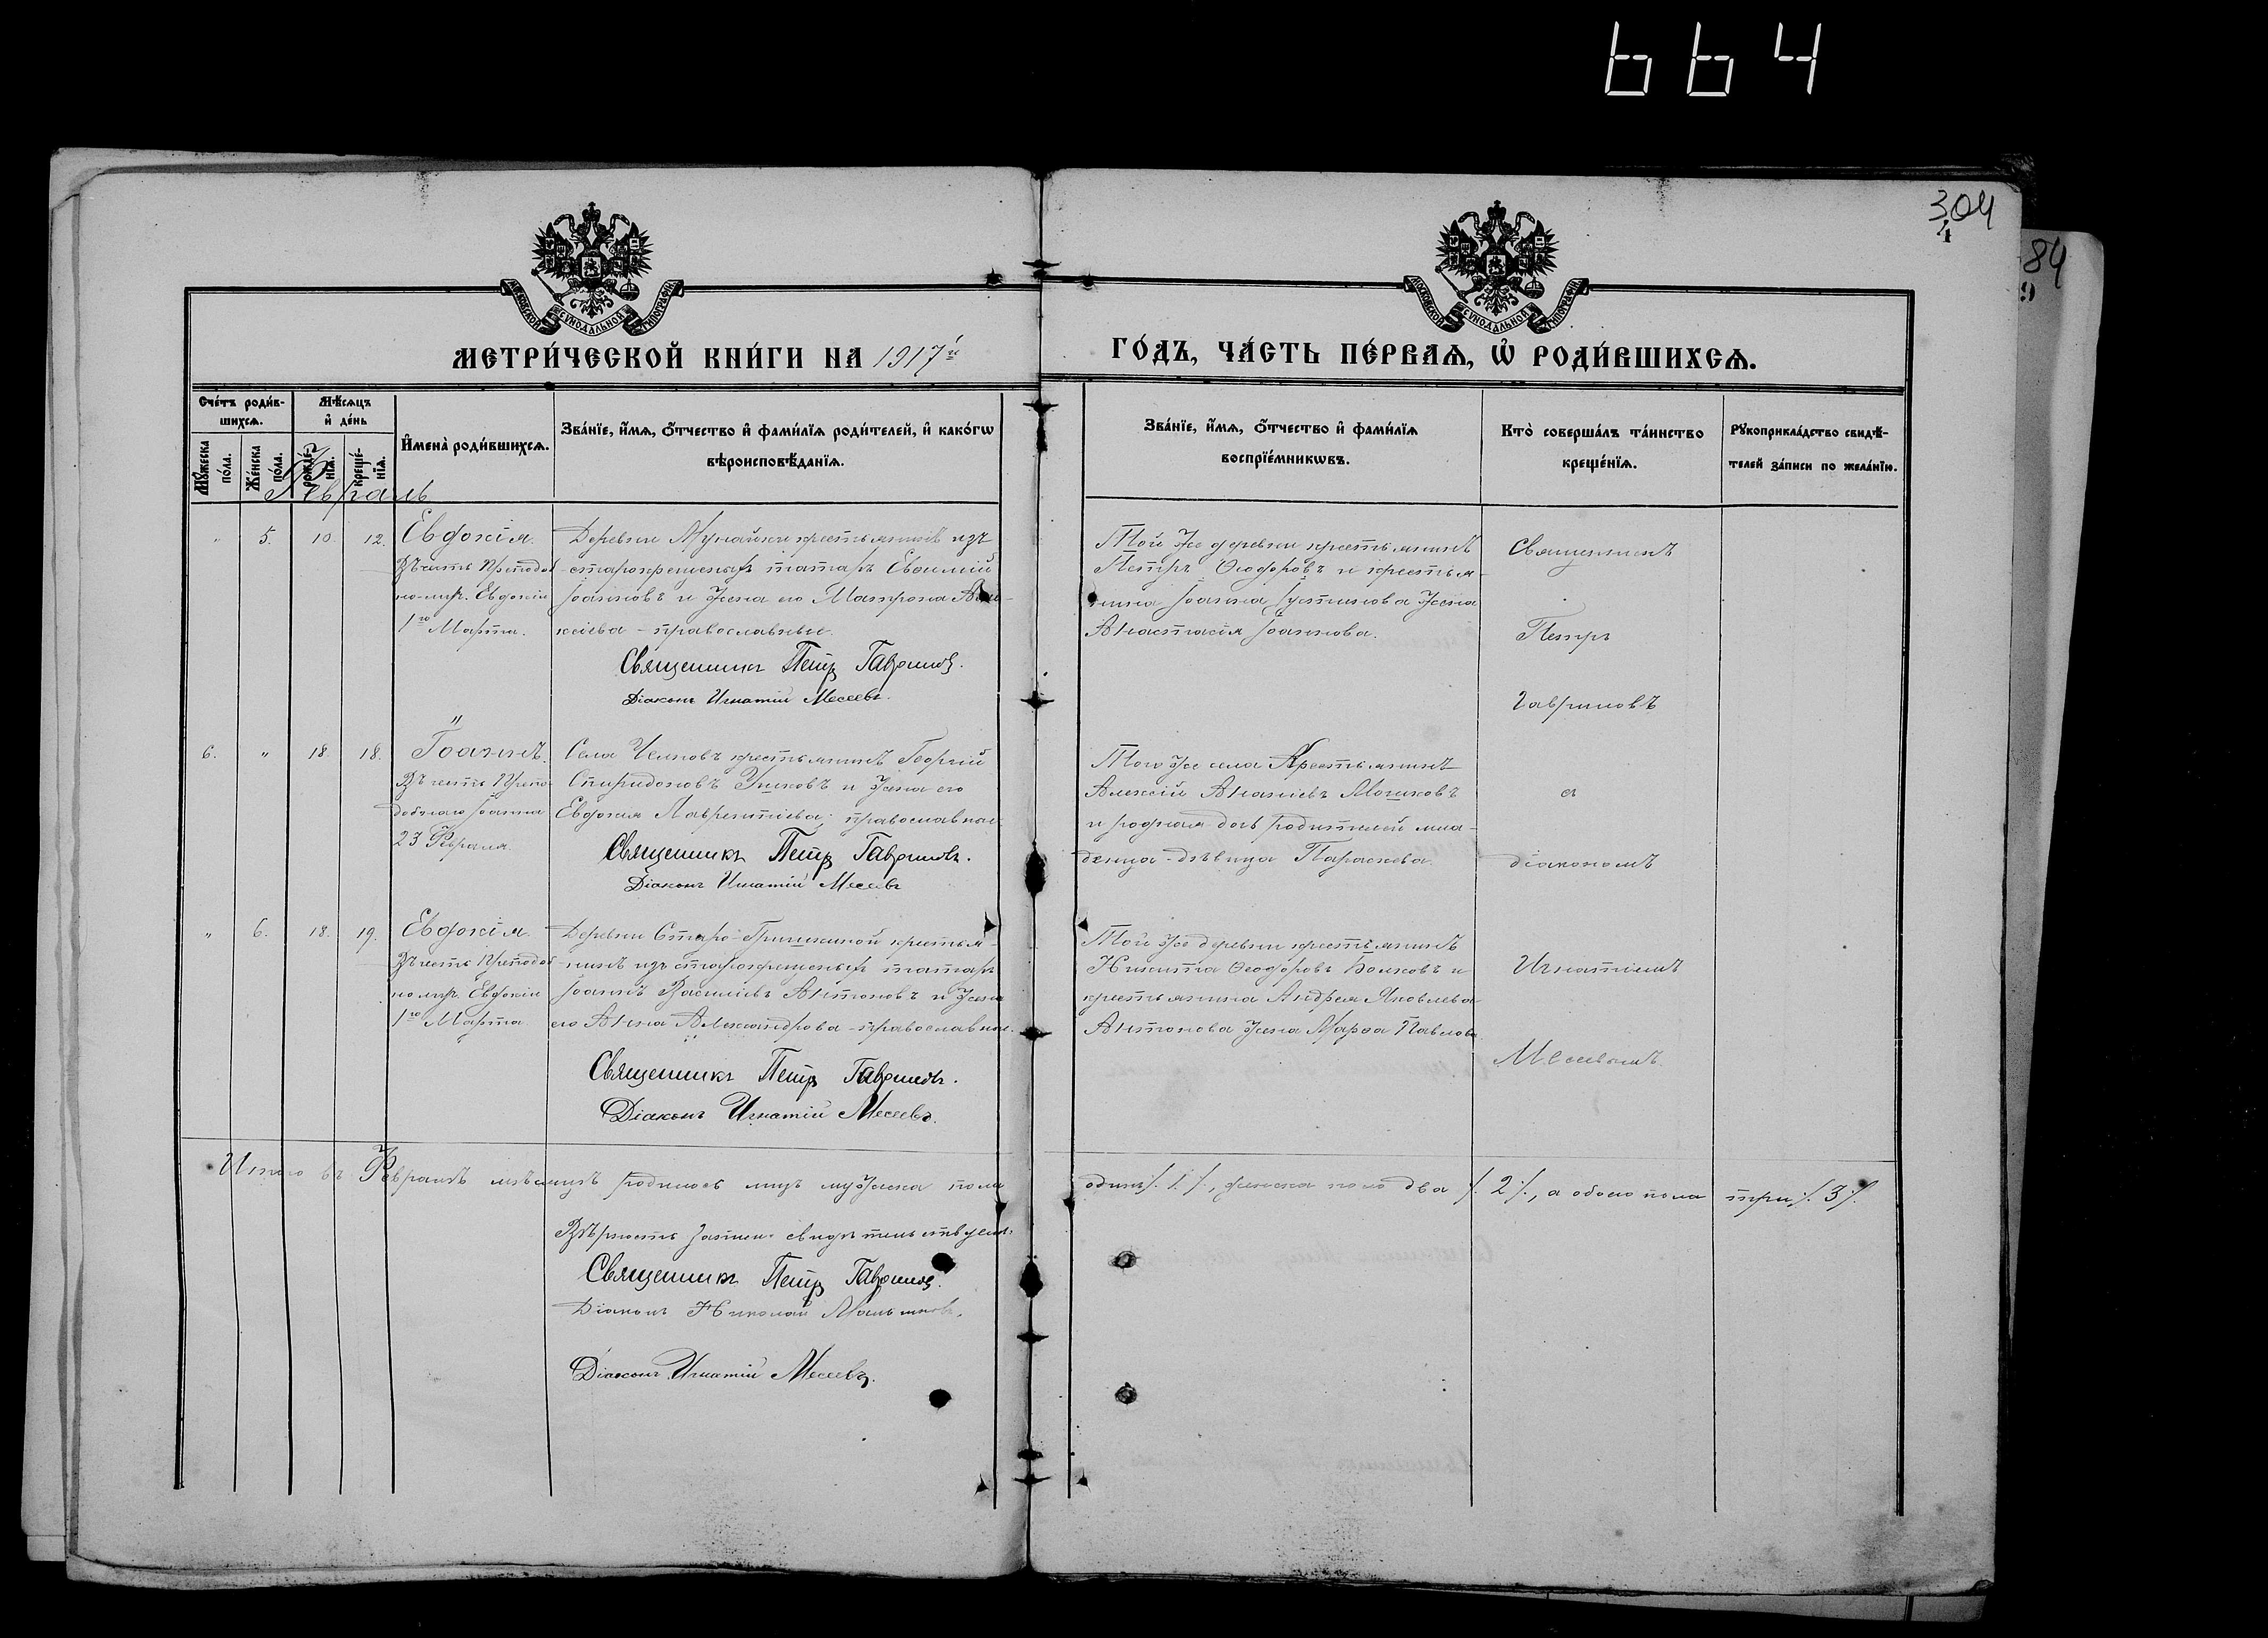 664
304
4
84
9
МОСКОВСКОЙ СѴНОДАЛЬНОЙ ТИПОГРАФІИ
МОСКОВСКОЙ СѴНОДАЛЬНОЙ ТИПОГРАФІИ
МЕТРИ́ЧЕСКОЙ КНИ́ГИ НА 1917й
ГО́ДЪ, ЧА́СТЬ ПЕ́РВАѦ, Ѽ РОДИ́ВШИХСѦ.
Сче́тъ роди́в-
шихсѧ.
Мѣ́сѧцъ
и҆ де́нь
Мꙋ́жеска по́ла.
Же́нска по́ла.
рожде́-нїѧ.
креще́-нїѧ.
И҆мена̀ роди́вшихсѧ.
Зва́нїе, и҆́мѧ, ѻ҆́тчество и҆ фами́лїѧ роди́телей, и҆ како́гѡ
вѣроисповѣ́данїѧ.
Зва́нїе, и҆́мѧ, ѻ҆́тчество и҆ фами́лїѧ
воспрїе́мникѡвъ.
Кто̀ соверша́лъ та́инство
креще́нїѧ.
Рꙋкоприкла́дство свидѣ́-
телей за́писи по жела́нїю.
Февраль
" 5. 10. 12. Евдокія.
Въ честь Преподоб
но-муч. Евдокіи
1го Марта.
Деревни крестьянинъ изъ
старокрещеныхъ татаръ Евѳимій
Іоанновъ и жена его Матрона
ксіева - православные.
Священникъ Петръ Гавриловъ.
Діаконъ Игнатій Месеевъ.
Той же деревни крестьянинъ
Петръ Ѳеодоровъ и крестья-
нина Іоанна Іустинова жена
Анастасія Іоаннова.
Священникъ
Петръ
Гавриловъ
"
6. " 18. 18. Іоаннъ.
Въ честь Препо-
добнаго Іоанна
23 Февраля.
Села крестьянинъ Георгій
Спиридоновъ и жена его
Евдокія Лаврентіева; православные
Священникъ Петръ Гавриловъ.
Діаконъ Игнатій Месеевъ
Того же села крестьянинъ
Алексій Ананіевъ
и родная дочь родителей мла-
денца - дѣвица Параскева.
съ
діакономъ
" 6. 18. 19. Евдокія.
Въ честь Преподоб
но муч. Евдокіи
1го Марта
Деревни Старо-Гришкиной крестья-
нинъ изъ старокрещеныхъ татаръ
Іоаннъ Василіевъ Антоновъ и жена
его Анна Александрова - православные.
Священникъ Петръ Гавриловъ.
Діаконъ Игнатій Месеевъ.
Той же деревни крестьянинъ
Никита Ѳеодоровъ Волковъ и
крестьянина Андрея Яковлева
Антонова жена Марѳа Павлова
Игнатіемъ
Месеевымъ.
Итого въ Февралѣ мѣсяцѣ родилось лицъ мужска пола одинъ /. 1 /., женска пола два /. 2 /., а обоего пола три /. 3 /.
Вѣрность записи свидѣтельствуемъ:
Священникъ Петръ Гавриловъ.
Діаконъ Николай
Діаконъ Игнатій Месеевъ.